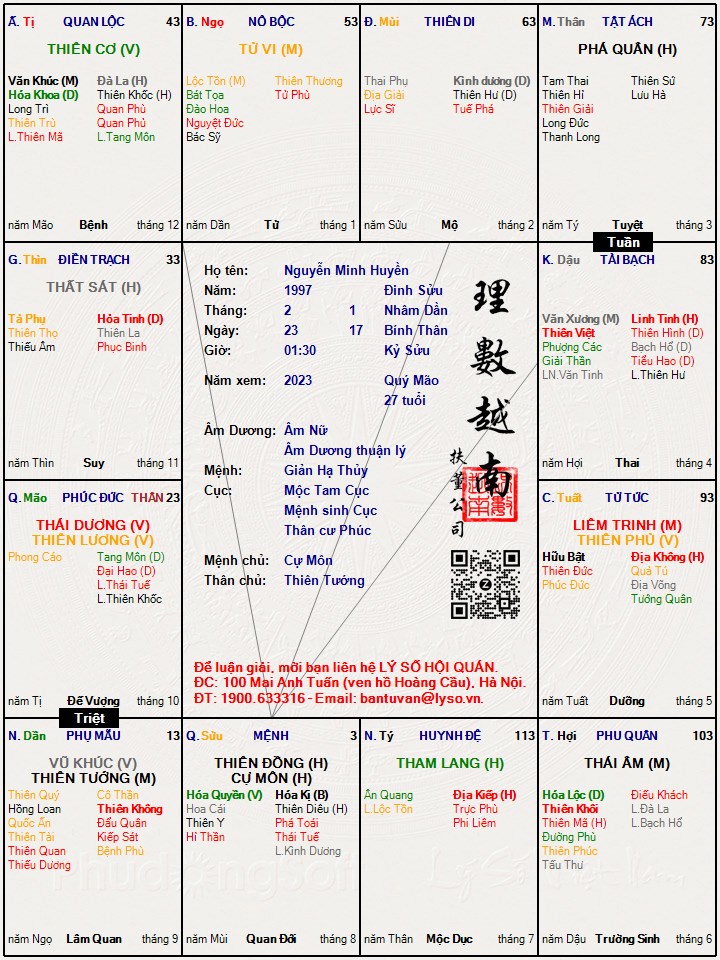 Ấ. Tị QUAN LỘC 43
THIÊN CƠ (V)
Văn Khúc (M) Đà La (H)
Hóa Khoa (D) Thiên Khốc (H)
Long Trì Quan Phù
Thiên Trù Quan Phủ
L.Thiên Mã L.Tang Môn
năm Mão Bệnh tháng 12
B. Ngọ NÔ BỘC 53
TỬ VI (M)
Lộc Tồn (M) Thiên Thương
Bát Tọa Tử Phù
Đào Hoa
Nguyệt Đức
Bác Sỹ
năm Dần Tử tháng 1
Đ. Mùi THIÊN DI 63
Thai Phụ Kình dương (D)
Địa Giải Thiên Hư (D)
Lực Sĩ Tuế Phá
năm Sửu Mộ tháng 2
M. Thân TẬT ÁCH 73
PHÁ QUÂN (H)
Tam Thai Thiên Sứ
Thiên Hỉ Lưu Hà
Thiên Giải
Long Đức
Thanh Long
năm Tý Tuyệt tháng 3
Tuần
G. Thìn ĐIỀN TRẠCH 33
THẤT SÁT (H)
Tả Phụ Hỏa Tinh (D)
Thiên Thọ Thiên La
Thiếu Âm Phục Binh
năm Thìn Suy tháng 11
Họ tên: Nguyễn Minh Huyền
Năm: 1997 Đinh Sửu
Tháng: 2 1 Nhâm Dần
Ngày: 23 17 Bính Thân
Giờ: 01:30 Kỷ Sửu
Năm xem: 2023 Quý Mão
27 tuổi
Âm Dương: Âm Nữ
Âm Dương thuận lý
Mệnh: Giản Hạ Thủy
Cục: Mộc Tam Cục
Mệnh sinh Cục
Thân cư Phúc
Mệnh chủ: Cự Môn
Thân chủ: Thiên Tướng
理數越南
扶董公司
Z
Để luận giải, mời bạn liên hệ LÝ SỐ HỘI QUÁN.
ĐC: 100 Mai Anh Tuấn (ven hồ Hoàng Cầu), Hà Nội.
ĐT: 1900.633316 - Email: bantuvan@lyso.vn.
K. Dậu TÀI BẠCH 83
Văn Xương (M) Linh Tinh (H)
Thiên Việt Thiên Hình (D)
Phượng Các Bạch Hổ (D)
Giải Thần Tiểu Hao (D)
LN.Văn Tinh L.Thiên Hư
năm Hợi Thai tháng 4
Q. Mão PHÚC ĐỨC THÂN 23
THÁI DƯƠNG (V)
THIÊN LƯƠNG (V)
Phong Cáo Tang Môn (D)
Đại Hao (D)
L.Thái Tuế
L.Thiên Khốc
năm Tị Đế Vượng tháng 10
C. Tuất TỬ TỨC 93
LIÊM TRINH (M)
THIÊN PHỦ (V)
Hữu Bật Địa Không (H)
Thiên Đức Quả Tú
Phúc Đức Địa Võng
Tướng Quân
năm Tuất Dưỡng tháng 5
Triệt
N. Dần PHỤ MẪU 13
VŨ KHÚC (V)
THIÊN TƯỚNG (M)
Thiên Quý Cô Thần
Hồng Loan Thiên Không
Quốc Ấn Đẩu Quân
Thiên Tài Kiếp Sát
Thiên Quan Bệnh Phù
Thiếu Dương
năm Ngọ Lâm Quan tháng 9
Q. Sửu MỆNH 3
THIÊN ĐỒNG (H)
CỰ MÔN (H)
Hóa Quyền (V) Hóa Kị (B)
Hoa Cái Thiên Diêu (H)
Thiên Y Phá Toái
Hỉ Thần Thái Tuế
L.Kình Dương
năm Mùi Quan Đới tháng 8
N. Tý HUYNH ĐỆ 113
THAM LANG (H)
Ân Quang Địa Kiếp (H)
L.Lộc Tồn Trực Phù
Phi Liêm
năm Thân Mộc Dục tháng 7
T. Hợi PHU QUÂN 103
THÁI ÂM (M)
Hóa Lộc (D) Điếu Khách
Thiên Khôi L.Đà La
Thiên Mã (H) L.Bạch Hổ
Đường Phù
Thiên Phúc
Tấu Thư
năm Dậu Trường Sinh tháng 6